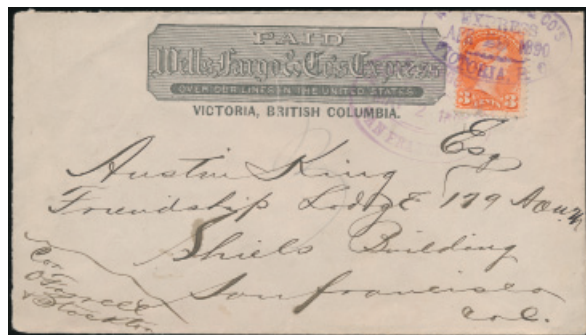 PAID
Wells Fargo & Co's Express
OVER OUR LINES IN THE UNITED STATES
VICTORIA, BRITISH COLUMBIA.
& CO'S
EXPRESS
1890
VICTORIA B C
3 CENTS 3
Esq
Austin King
Friendship Lodge 179
Shiels Building
San Francisco
Cal.
Cor
O'Farrell
& Stockton